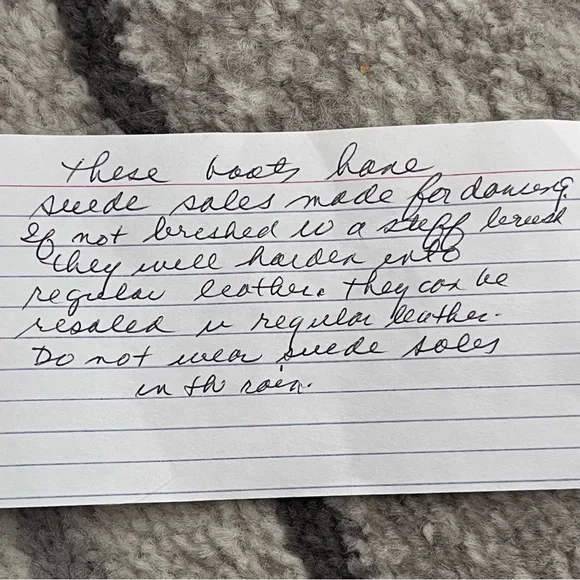 These boots have
suede soles made for dancing.
If not brushed w a stiff brush
they will harden into
regular leather. They can be
resoled w regular leather.
Do not wear suede soles
in th rain.